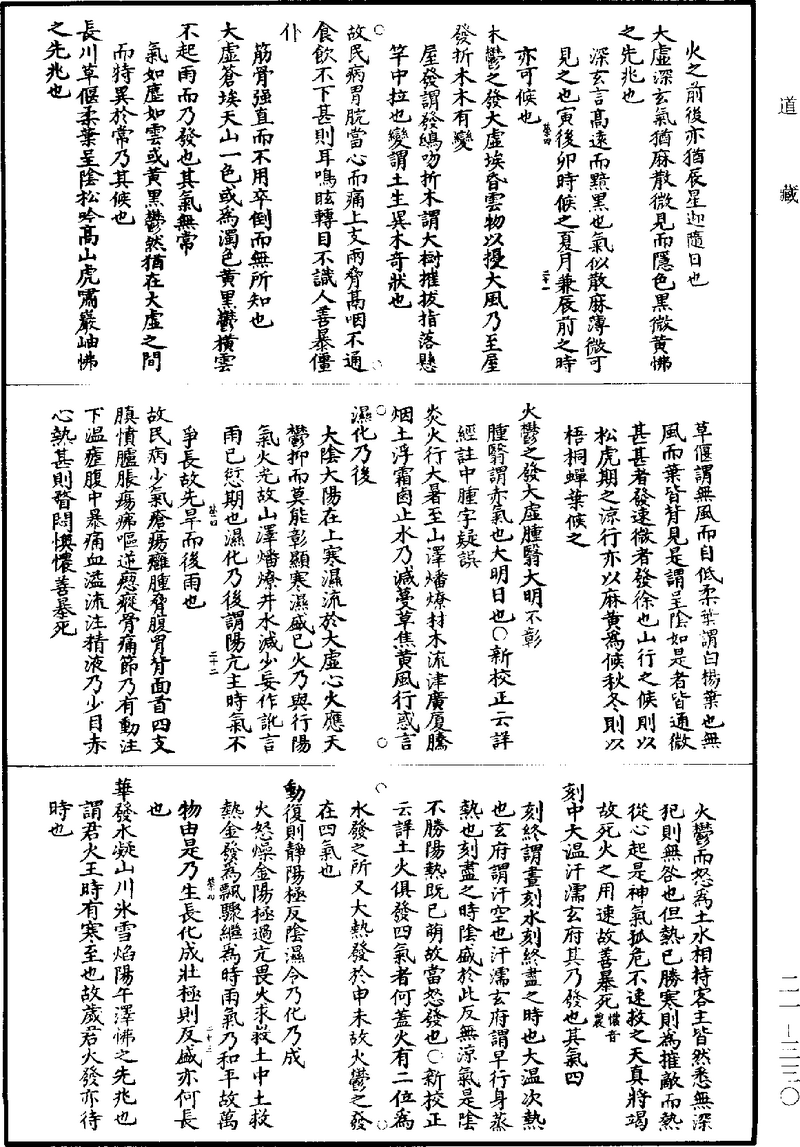 道藏
火之前後亦猶辰星迦隨日也
大虛深玄氣猶麻散微見而隱色黑微黃怫
之先兆也
深玄言高遠而黯黑也氣似散麻薄微可
見之也寅後卯時候之夏月兼辰前之時
亦可候也
木鬱之發大虛埃昏雲物以擾大風乃至屋
發折木木有變
屋發謂發鴟吻折木謂大樹摧拔指落懸
竿中拉也變謂土生異木奇狀也
故民病胃脘當心而痛上支兩脅鬲咽不通
食飲不下甚則耳鳴眩轉目不識人善暴僵
仆
筋骨强直而不用卒倒而無所知也
大虛蒼埃天山一色或為濁色黃黑鬱橫雲
不起雨而乃發也其氣無常
氣如塵如雲或黃黑鬱然猶在大虛之間
而特異於常乃其候也
長川草偃柔葉呈陰松吟高山虎嘯巖岫怫
之先兆也
草偃謂無風而自低柔葉謂白楊葉也無
風而葉皆背見是謂呈陰如是者皆通微
甚甚者發速微者發徐也山行之候則以
松虎期之凉行亦以麻黃為候秋冬則以
梧桐蟬葉候之
火鬱之發大虛腫翳大明不彰
腫翳謂赤氣也大明日也○新校正云詳
經註中腫字疑誤
炎火行大暑至山澤燔燎材木流津廣厦騰
烟土浮霜鹵止水乃減蔓草焦黃風行惑言
濕化乃後
大陰大陽在上寒濕流於大虛心火應天
鬱抑而莫能彰顯寒濕盛已火乃與行陽
氣火光故山澤燔燎井水減少妄作訛言
雨已愆期也濕化乃後謂陽亢主時氣不
爭長故先旱而後雨也
故民病少氣瘡瘍癰腫脅腹胃背面首四支
䐜憤臚脹瘍痱嘔逆瘛瘲骨痛節乃有動注
下溫瘧腹中暴痛血溢流注精液乃少目赤
心熱甚則瞀悶懊憹善暴死
火鬱而怒為土水相持客主皆然悉無深
犯則無欲也但熱已勝寒則為摧敵而熱
從心起是神氣孤危不速救之天真將竭
故死火之用速故善暴死憹音農
刻中大溫汗濡玄府其乃發也其氣四
刻終謂晝刻水刻終盡之時也大溫次熱
也玄府謂汗空也汗濡玄府謂早行身蒸
熱也刻盡之時陰盛於此反無涼氣是陰
不勝陽熱既已萌故當怒發也○新校正
云詳土火俱發四氣者何蓋火有二位為
水發之所又大熱發於申未故火鬱之發
在四氣也
動復則靜陽極反陰濕令乃化乃成
火怒燥金陽極過亢畏火求救土中土救
熱金發為飄驟繼為時雨氣乃和平故萬
物由是乃生長化成壯極則反盛亦何長
也
華發水凝山川冰雪焰陽午澤怫之先兆也
謂君火王時有寒至也故歲君火發亦待
時也
二一—二三〇